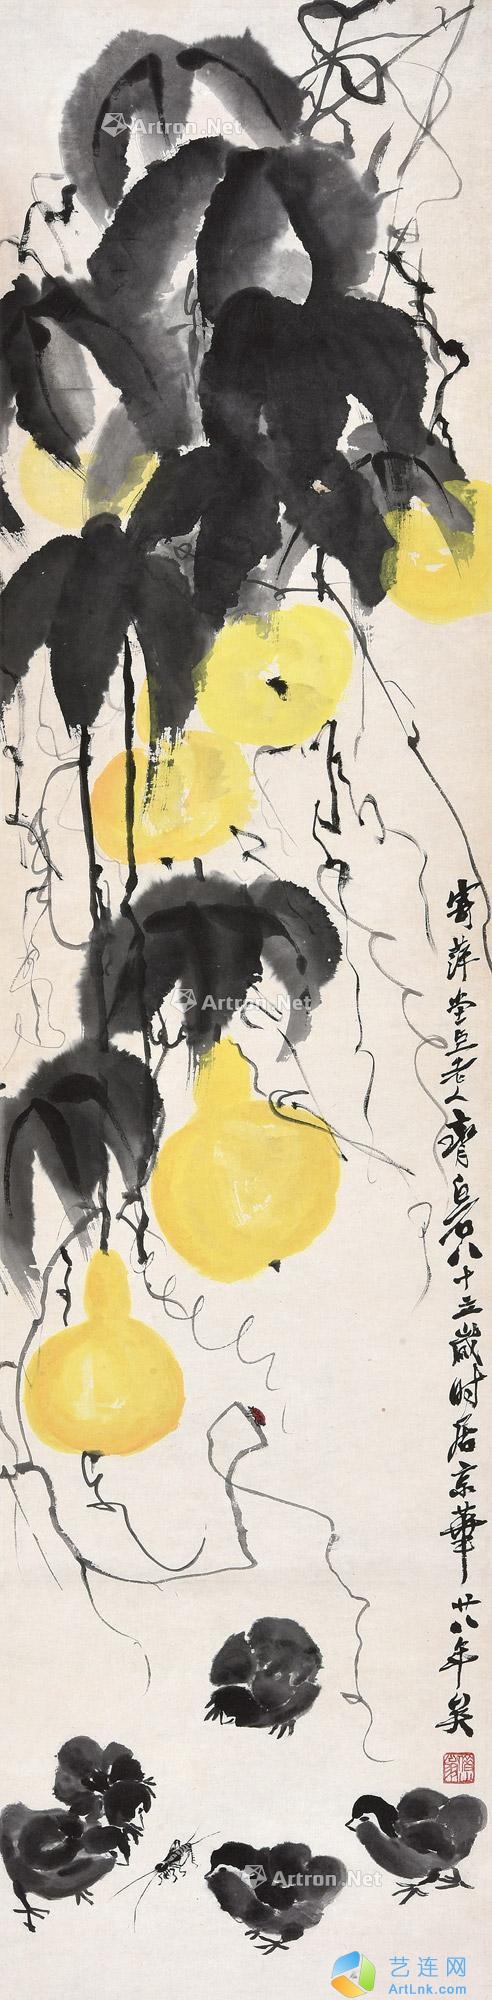 Artron.Net
Artron.Net
寄萍堂上老人齊白石八十三歲時居京華廿八年矣
Artron.Net
Artron.Net
艺连网
ArtLnk.Com